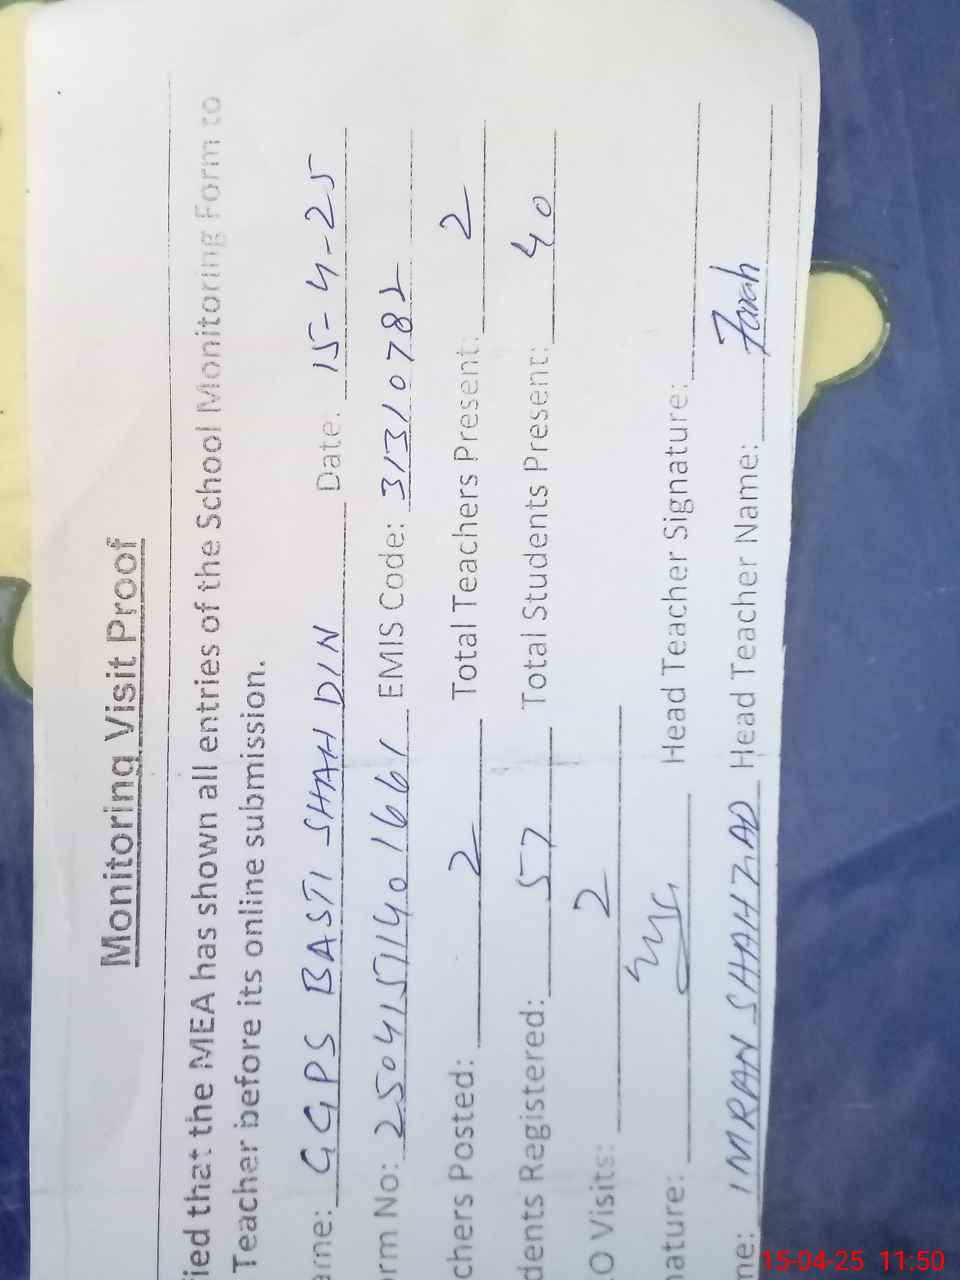 Monitoring Visit Proof
fied that the MEA has shown all entries of the School Monitoring Form to
Teacher before its online submission.
ame: GGPS BASTI SHAH DIN Date: 15-4-25
orm No: 2504151140 1661 EMIS Code: 31310782
chers Posted: 2 Total Teachers Present: 2
dents Registered: 57 Total Students Present: 40
O Visits: 2
nature: Head Teacher Signature:
me: IMRAN SHAHZAD Head Teacher Name: Farah
15-04-25 11:50